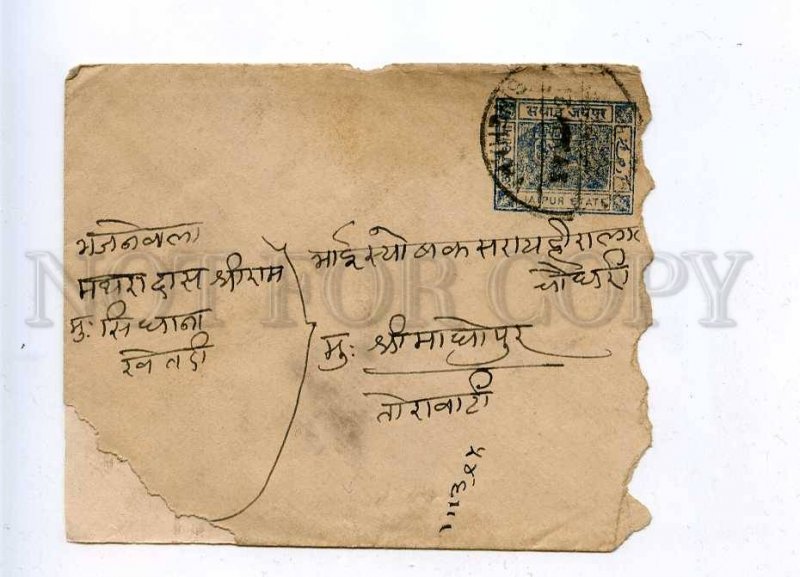 सवाई जयपुर
JAIPUR STATE
भेजनेवाला
मथुरा दास श्रीराम
मु: सिंघाना
खेतडी
भाई स्यो बक सराय हीरालाल
चौधरी
मु: श्रीमाधोपुर
तोरावाटी
NOT FOR COPY